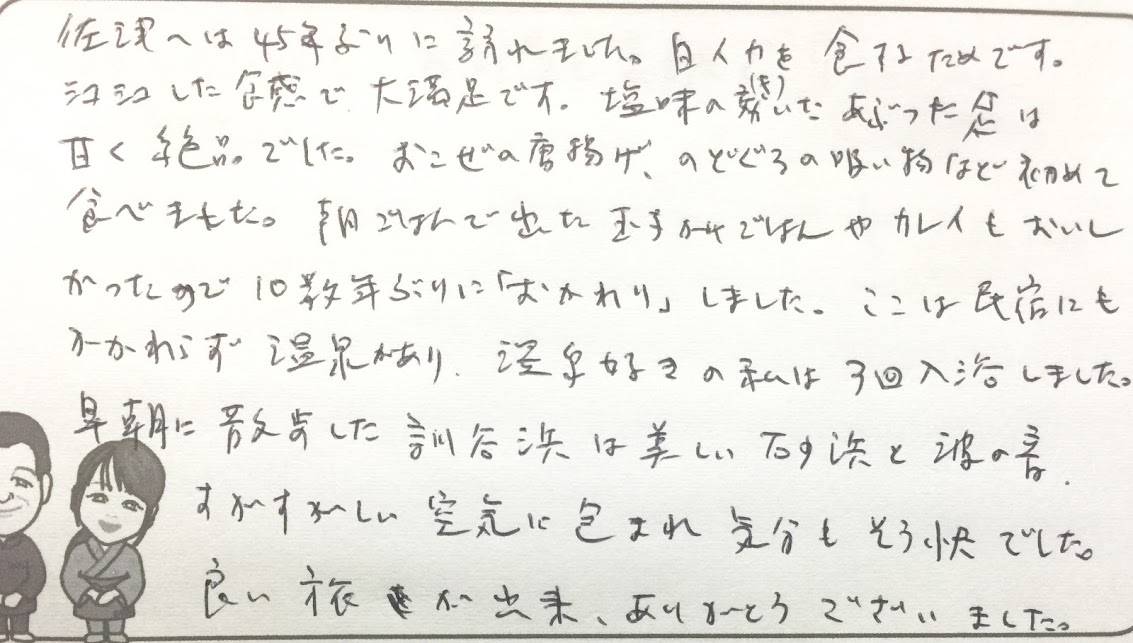 佐津へは45年ぶりに訪れました。白イカを食するためです。
シコシコした食感で大満足です。塩味の効(き)いたあぶった足は
甘く絶品でした。おこぜの唐揚げ、のどぐろの吸い物など初めて
食べました。朝ごはんで出た玉子かけごはんやカレイもおいし
かったので10数年ぶりに「おかわり」しました。ここは民宿にも
かかわらず温泉があり、温泉好きの私は3回入浴しました。
早朝に散歩した訓谷浜は美しい砂浜と波の音、
すがすがしい空気に包まれ気分もそう快でした。
良い旅が出来、ありがとうございました。